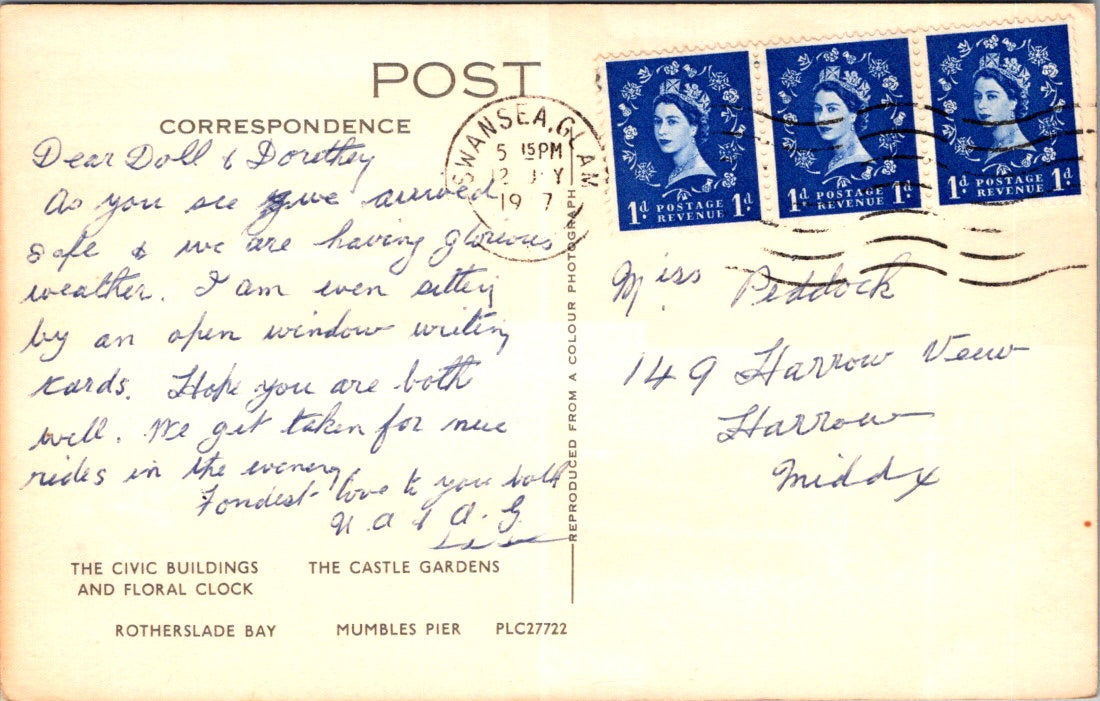 POST
CORRESPONDENCE
SWANSEA, GLAM
5 15 PM
12 J Y
19 7
1d POSTAGE REVENUE 1d
1d POSTAGE REVENUE 1d
1d POSTAGE REVENUE 1d
Dear Doll & Dorothey
As you see we arrived
safe & we are having glorious
weather. I am even sitting
by an open window writing
cards. Hope you are both
well. We get taken for nice
rides in the evening
Fondest love to you both
U. A & A. G.
REPRODUCED FROM A COLOUR PHOTOGRAPH
Miss Peddock
149 Harrow View
Harrow
Middx
THE CIVIC BUILDINGS
AND FLORAL CLOCK
THE CASTLE GARDENS
ROTHERSLADE BAY
MUMBLES PIER
PLC27722